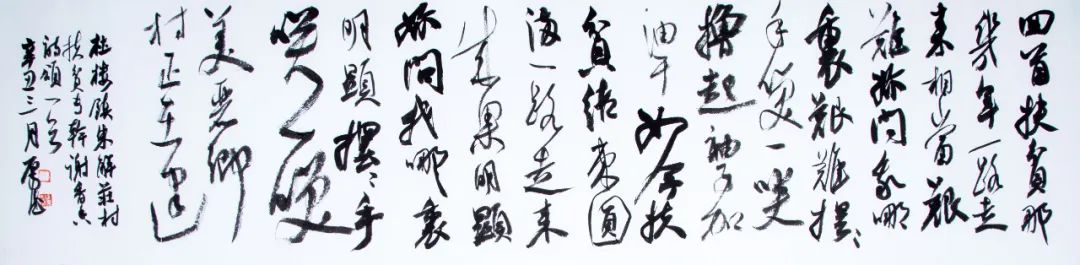 回首扶貧那
幾年一路走
來相當艱
難你問我哪
裏艱難擺〻
手笑一笑
擼起袖子加
油干如今扶
貧結束圓
滿一路走來
成果明顯
你問我哪裏
明顯擺〻手
笑一笑
美麗鄉
村正在建
杜樓鎮朱解莊村
扶貧專幹謝香
頌一首
辛丑三月